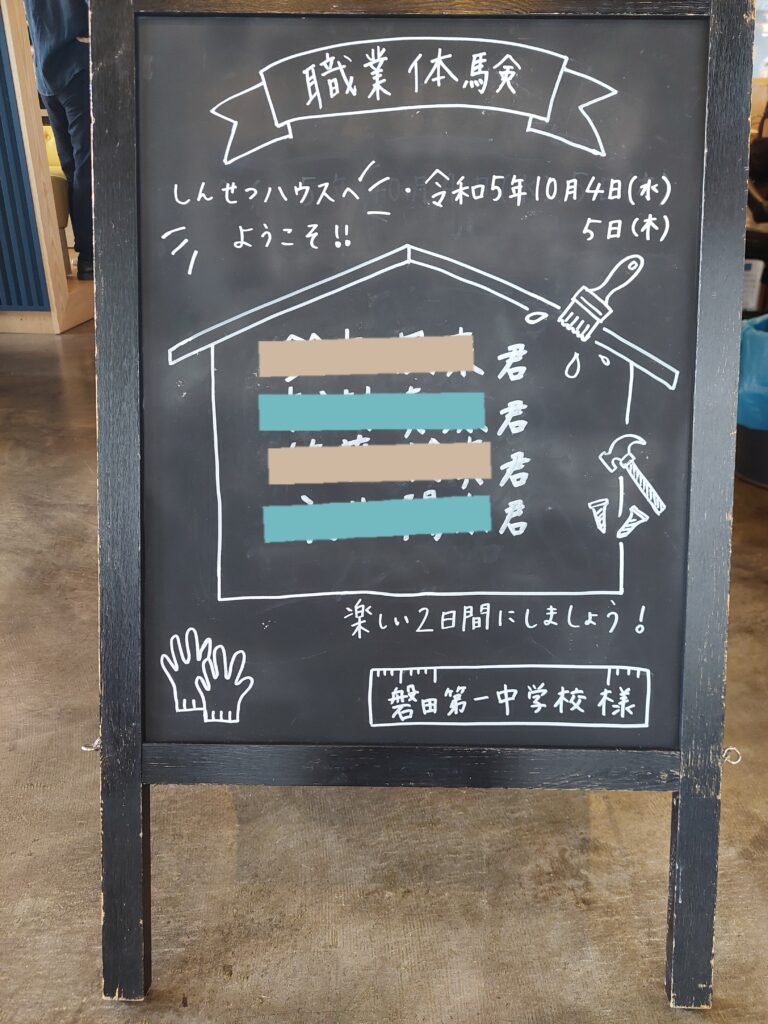 職業体験
しんせつハウスへ
ようこそ!!
・令和5年10月4日(水)
5日(木)
君
君
君
君
楽しい2日間にしましょう!
磐田第一中学校様